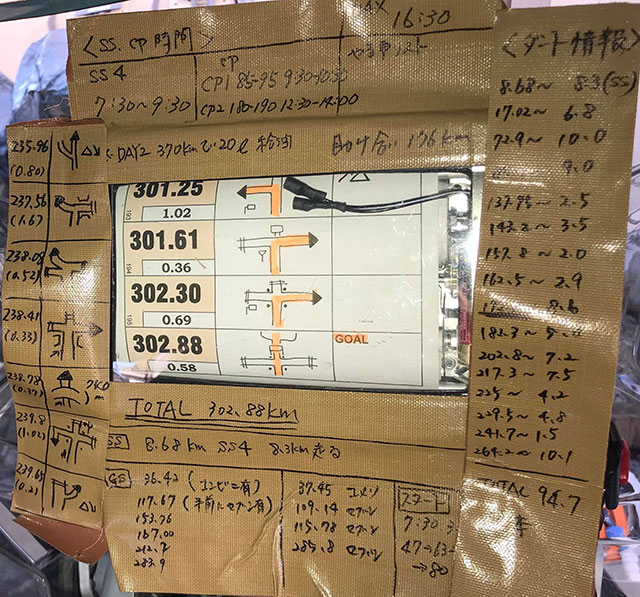 MAX
16:30
<SS.CP時間>
SS4
7:30～9:30
CP
CP1 85-95 9:30-10:30
CP2 180-190 12:30-14:00
やる事リスト
DAY2 370kmで20ℓ 給油
助け合い 176km
<ダート情報>
8.68～ 8.3(SS)
17.02～ 6.8
72.9～ 10.0
9.0
137.95～ 2.5
143.2～ 3.5
157.8～ 2.0
162.5～ 2.9
8.6
182.3～
202.8～ 7.2
217.3～ 7.5
225～ 4.2
229.5～ 4.8
241.7～ 1.5
264.2～ 10.1
TOTAL 94.7
235.96
(0.80)
237.56
(1.67)
238.08
(0.52)
238.41
(0.33)
238.78
(0.37)
240
m
239.8
(1.02)
(0.21)
301.25
193
1.02
301.61
194
0.36
302.30
195
0.69
302.88
0.58
GOAL
TOTAL 302.88km
SS 8.68km SS4 8.3km走る
GS 36.42 (コンビニ有)
117.67 (手前にセブン有)
153.76
167.00
212.2
283.9
37.45 コメリ
109.14 セブン
115.78 セブン
285.8 セブン
スタート
7:30
47→63
→80